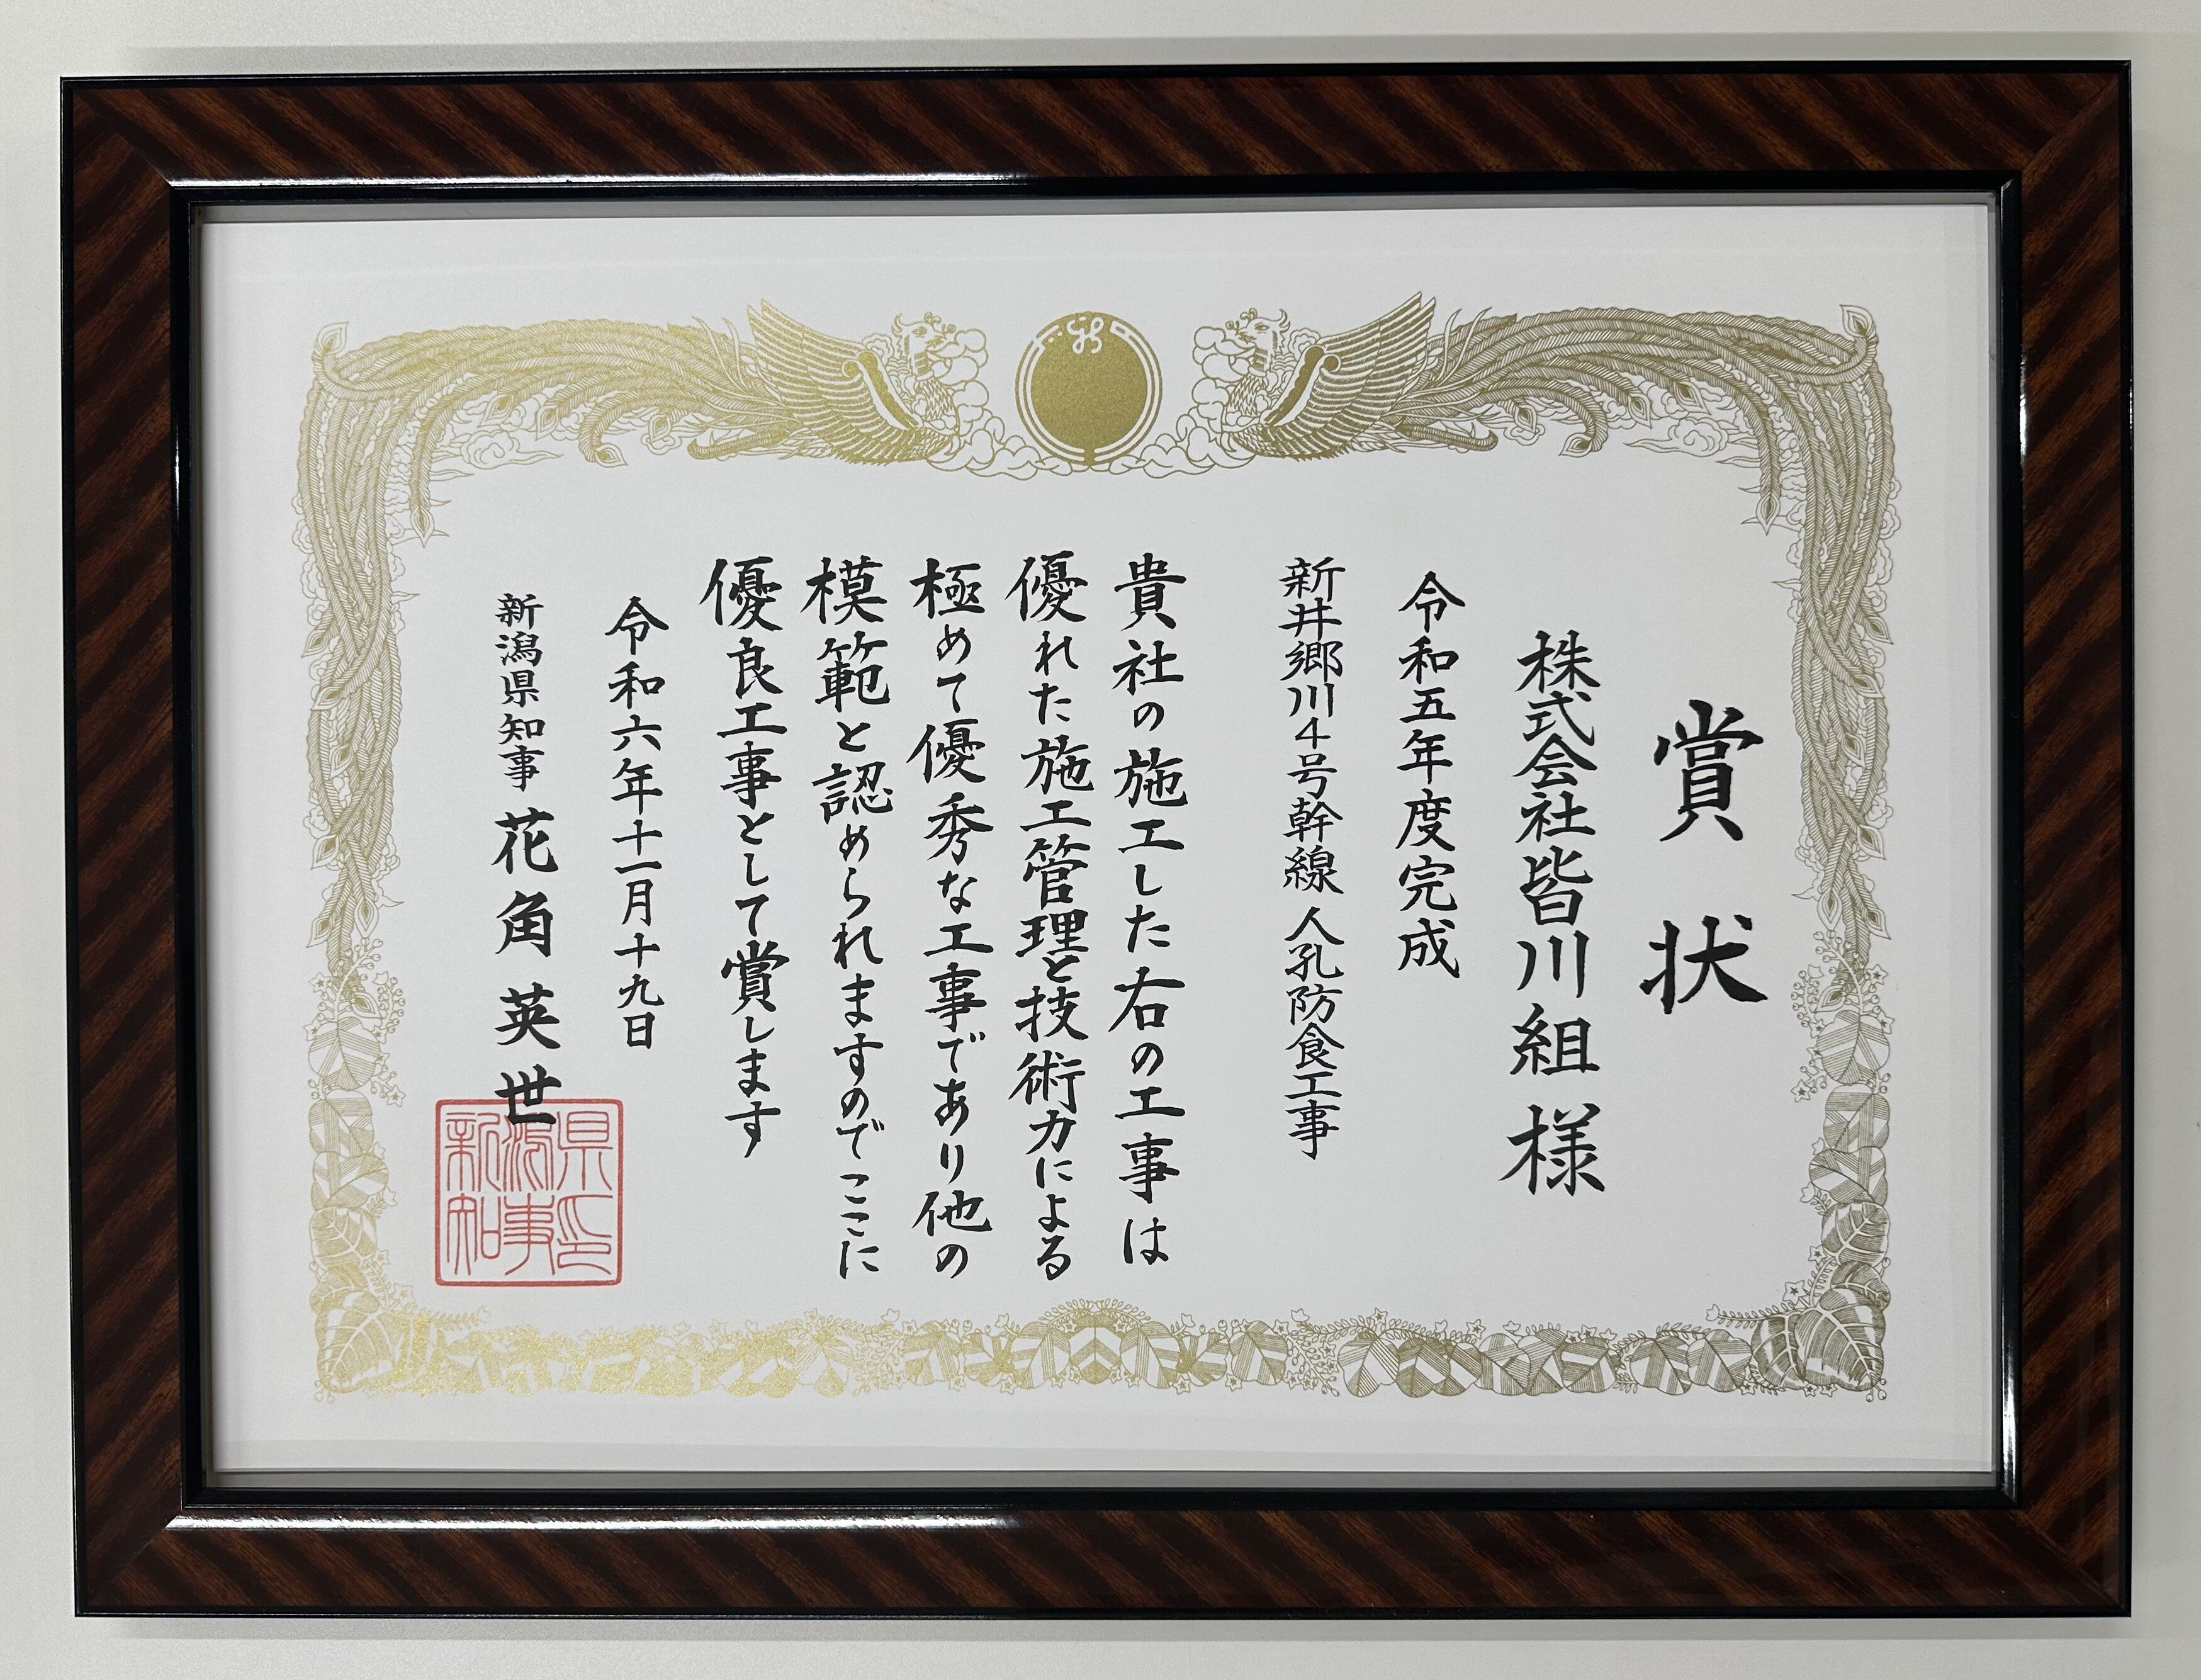 賞状
株式会社皆川組様
令和五年度完成
新井郷川4号幹線 人孔防食工事
貴社の施工した右の工事は
優れた施工管理と技術力による
極めて優秀な工事であり他の
模範と認められますのでここに
優良工事として賞します
令和六年十一月十九日
新潟県知事 花角英世
新潟県
知事印